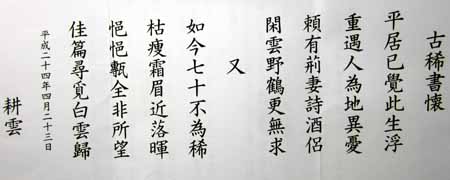 古稀書懷
平居已覺此生浮
重遇人為地異憂
頼有荊妻詩酒侶
閑雲野鶴更無求
又
如今七十不為稀
枯痩霜眉近落暉
悒悒甎全非所望
佳篇尋覓白雲歸
平成二十四年四月二十三日
耕雲